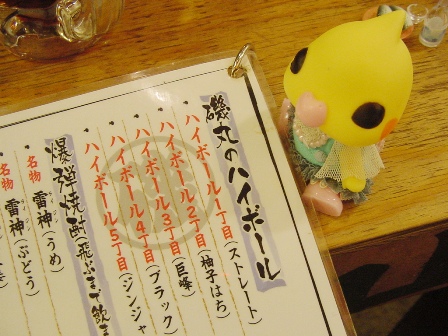 磯丸のハイボール
ハイボール1丁目(ストレート)
ハイボール2丁目(柚子はち
ハイボール3丁目(巨峰)
ハイボール4丁目(ブラック)
ハイボール5丁目(ジンジャ
爆弾焼酎(飛ぶまで飲ま
名物 雷神(うめ)
名物 雷神(ぶどう)
名物